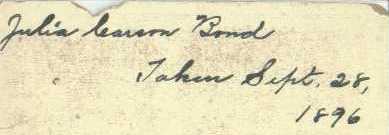 Julia Carson Bond
Taken Sept. 28,
1896